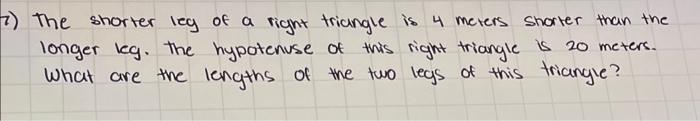 7) The shorter leg of a right triangle is 4 meters shorter than the
longer leg. The hypotenuse of this right triangle is 20 meters.
What are the lengths of the two legs of this triangle?